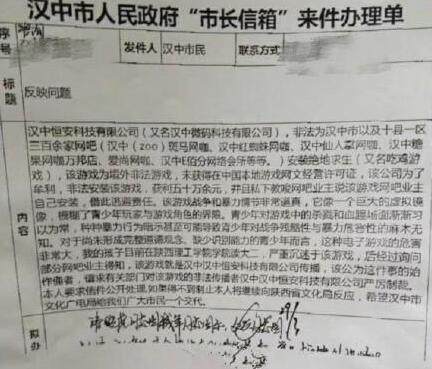 汉中市人民政府“市长信箱”来件办理单
序号
发件人
汉中市民
联系方式
标题
反映问题
内容
汉中恒安科技有限公司(又名汉中微码科技有限公司),非法为汉中市以及十县一区
三百余家网吧(汉中(zoo)斑马网咖、汉中红蜘蛛网咖、汉中仙人掌网咖、汉中糖
果网咖万邦店、爱尚网咖、汉中E佰分网络会所等等。)安装绝地求生(又名吃鸡游
戏),该游戏为境外非法游戏,未获得在中国本地游戏网文经营许可证,该公司为了
牟利,非法安装该游戏,获利五十万余元,并且私下教唆网吧业主说该游戏网吧业主
自己安装,借此逃避责任。该游戏战争和暴力情节非常逼真,它像一个巨大的虚拟镜
像,模糊了青少年玩家与游戏角色的界限。青少年对游戏中的杀戮和血腥场面渐渐习
以为常,种种暴力行为暗示甚至可能导致青少年对战争残酷性与暴力危害性的麻木无
感。对于尚未形成完整道德观念、缺少识别能力的青少年而言,这种电子游戏的危害
非常大,我的孩子目前在陕西理工学院学院读大二,严重沉迷于该游戏,后经过询问
部分网吧业主得知,该游戏就是汉中汉中恒安科技有限公司传播,该公为这件事的始
作俑者,编求有关部门对该游戏的非法传播者汉中汉中恒安科技有限公司严厉制裁。
本人要求信件公开处理,如果得不到制止本人将继续向陕西省文化局反应,希望汉中市
文化广电局给我们广大市民一个交代。
拟办